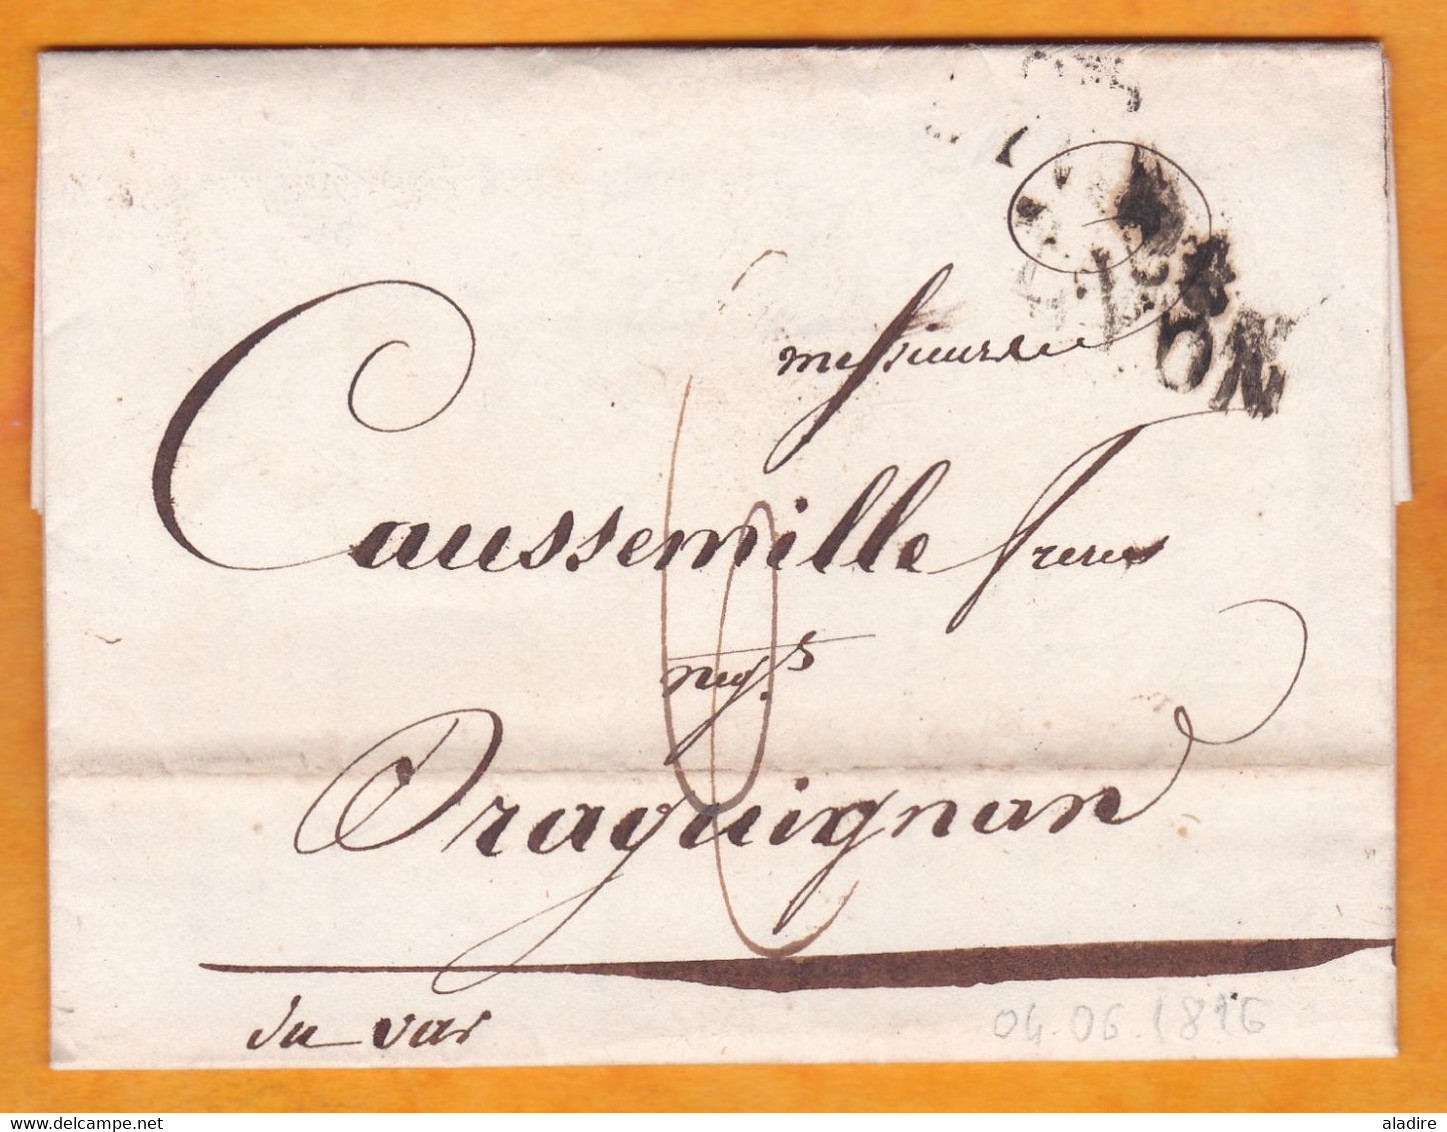 messieurs
Caussemille freres
negts
Draguignan
du var
04.06.1816
ON
delcampe.net
aladire